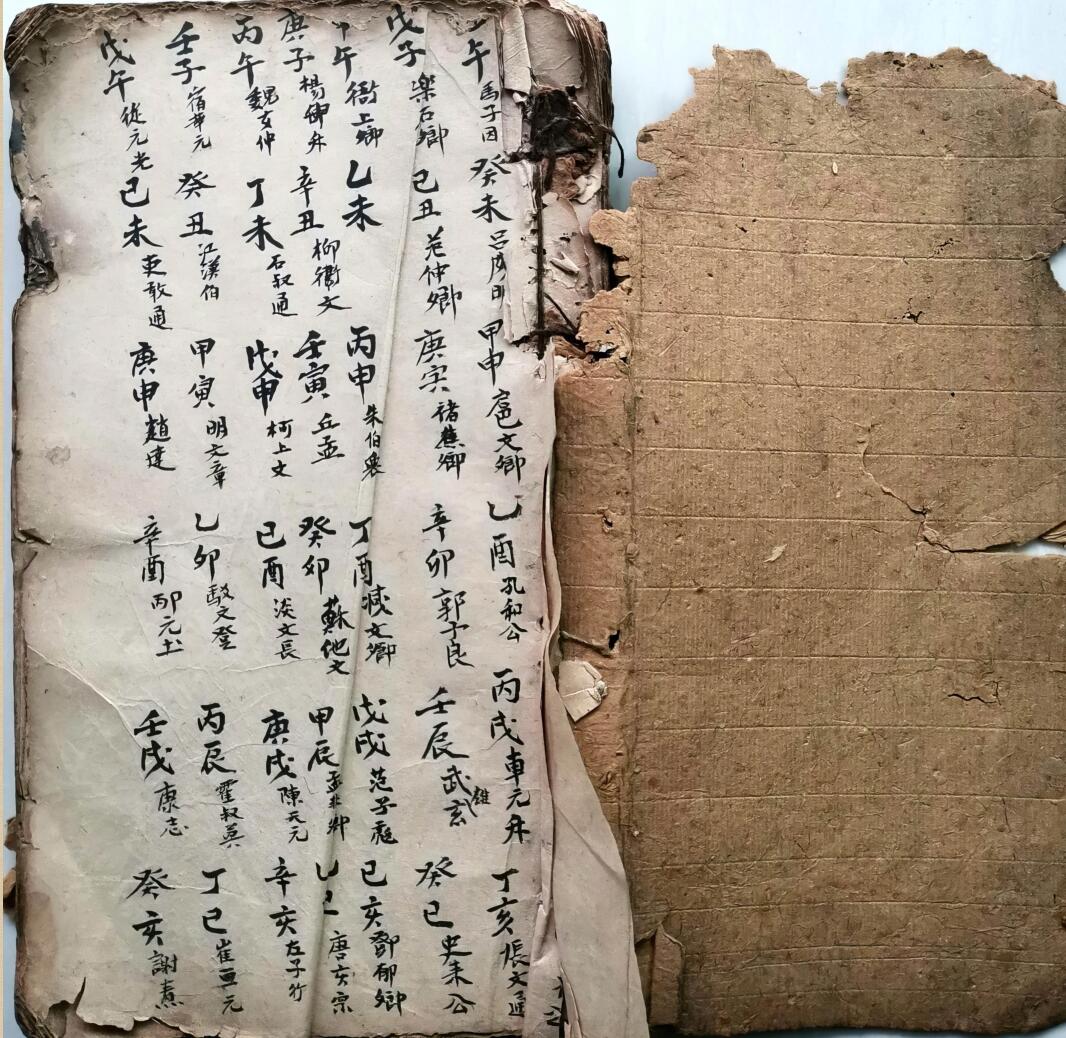 午馬子因 癸未呂成明 甲申扈文卿 乙酉孔和公 丙戌車元升 丁亥張文通
戊子樂石卿 己丑范仲卿 庚寅褚蕉卿 辛卯郭子良 壬辰武玄 癸巳史耒公
午衛上卿 乙未 丙申朱伯衆 丁酉減文卿 戊戌范子彪 己亥鄧郁卿
庚子楊仲升 辛丑柳衛文 壬寅丘孟 癸卯蘇他文 甲辰孟非卿 乙巳唐亥宗
丙午魏文仲 丁未石叔通 戊申柯上文 己酉淡文長 庚戌陳天元 辛亥左子行
壬子宿華元 癸丑江漢伯 甲寅明文章 乙卯文登 丙辰霍叔英 丁巳崔亘元
戊午從元光 己未吏敢通 庚申趙達 辛酉邴元士 壬戌康志 癸亥謝燾